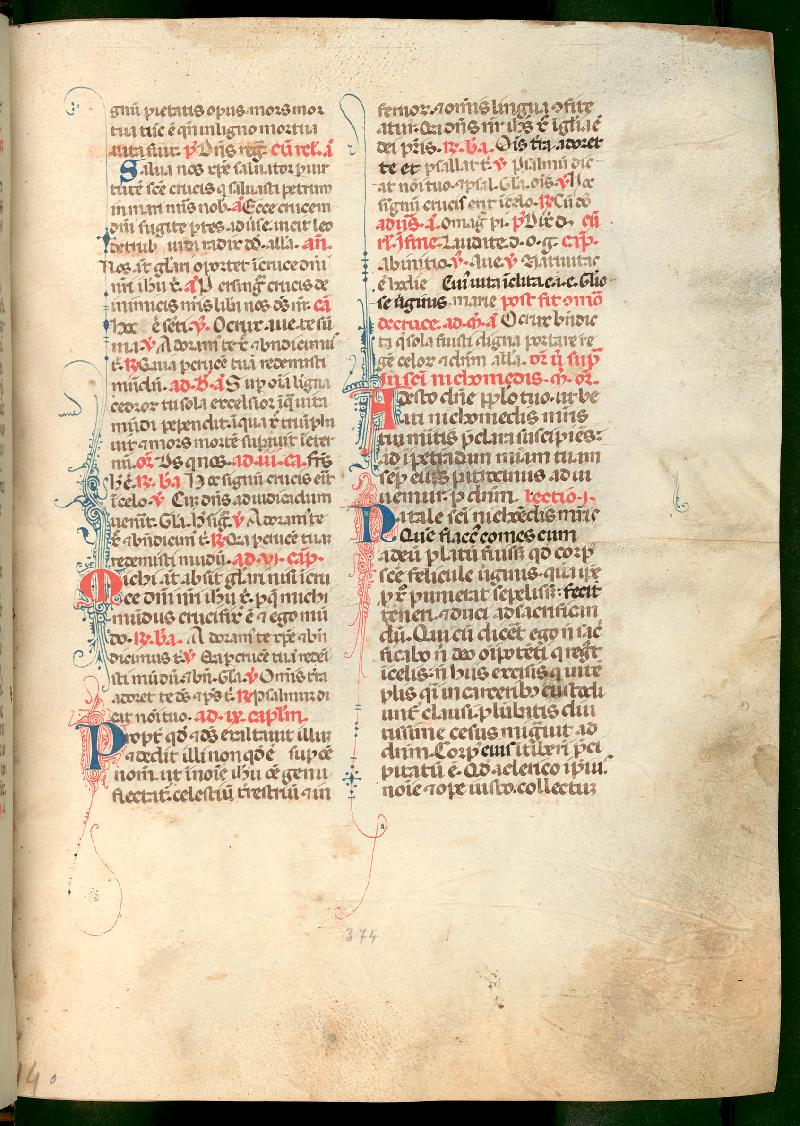 gnū pietatis opus mors mor
tua tūc ē qn̄ in ligno mortua
uita fuit. p̄ Dn̄s reg. cū rel. a
Salua nos xp̄e saluator p uir
tutē sc̄e crucis q saluasti petrum
in mari mis̄ nob. a Ecce crucem
dn̄i fugite ptes aduse. uicit leo
detrib iuda radix dd. alla. an.
Nos at glari oportet ī cruce dn̄i
nr̄i ihu x̄. a P ersignū̄ crucis de
inimicis nr̄is libā nos ds̄ nr̄. ca
hoc ē seti. v. O crux aue spes ūi
ma. v A doram̄ te x̄ & bn̄dicimus
t. R. Q̄ia p crucē tuā redemisti
mūdū. ad. B. a Sup oīa ligna
cedrorū tu sola excelsior ī q̄ uita
mūdi pependit. ī qua x̄ triūpha
uit & mors mortē supauit ī eter
nū. or. Ds q nos. ad. iii. ca. frs̄
hē. R. ba Hoc signū crucis erit
ī celo. v Cum dn̄s ad iudicādum
uenīt. Gla. h sig. v Adoram̄ te
x̄ & bn̄dicim̄ t. R. Q̄a p crucē tuā
redemisti mūdū. ad. vi. cap.
Michi at absit glari nisi ī cru
ce dn̄i nr̄i ihu x̄. p q̄ michi
mūdus crucifix ē & ego mū
do. R. ba. Adoram̄ te xp̄e & bn̄
dicimus t. v Q̄a p crucē tuā redei
sti mūdū. abn̄. Gla. v Omis tr̄a
adoret te ds̄ & ps̄ t. R. psalmū di
cit noī tuo. ad. ix. caplm̄.
Propt qd̄ & ds̄ exaltauit illū
& dedit illi non qd̄ ē sup oē
nom̄. ut ī noīe ihu oē genu
flectat̄. celestiū t̄restriū & in
fernor. & om̄is lingua ofite
atur. Q̄a dn̄s nr̄ ihs x̄ ī glia ē
dei pr̄is. R. ba. Oīs tr̄a adoret
te et psallat t. v psalmū dic
at noī tuo. apsal. Gla. oīs. v Hoc
signū crucis erit ī celo. R. Cū dō
ad iis. a. O mag pi. p̄ Dix d. cū
rl. ī fine. Laudate. d. o. g. cap.
ab initio. v. Aue. v Natiuitas
ē hodie Cuī uita ī clita. e. a. e. Glio
se uginis marie post fit omō
de cruce. ad. m̄. a O crux bn̄dic
ta q̄ sola fuisti digna portare re
gē celor & dn̄m alla. or ū sup̄
In sc̄i nichomedis. m̄. or.
Adesto dn̄e pplo tuo. ut be
ati nichomedis mr̄is
tui mītis p̄clara suscipiēs:
ad īpetrādum mīam tuam
sep eius patrociniis adiu
uemur. p dn̄m. lectio. i.
Natale sc̄i nichomēdis mr̄is
Qui flaccē comes cum
ad eū platū fuiss; qd̄ corp
sc̄e felicule uginis. qua ipse
p x̄ pūnierat sepeliss;: fecit
teneri. & duci ad sacrifican
dū. Qui cū dicēt ego n̄ sac
ficabo n̄ deo oīpotēti q regt̄
ī celis. n̄ hiis excisis q̄ uite
plis q̄i in carcerib; custodi
unt̄ clausi. plūbatis diu
tissime cesus migauit ad
dn̄m. Corp eius ī tiberī p̄ci
pitatū ē. Qd̄ a clerico ipiu;
noīe & ope iusto. collectū:
374